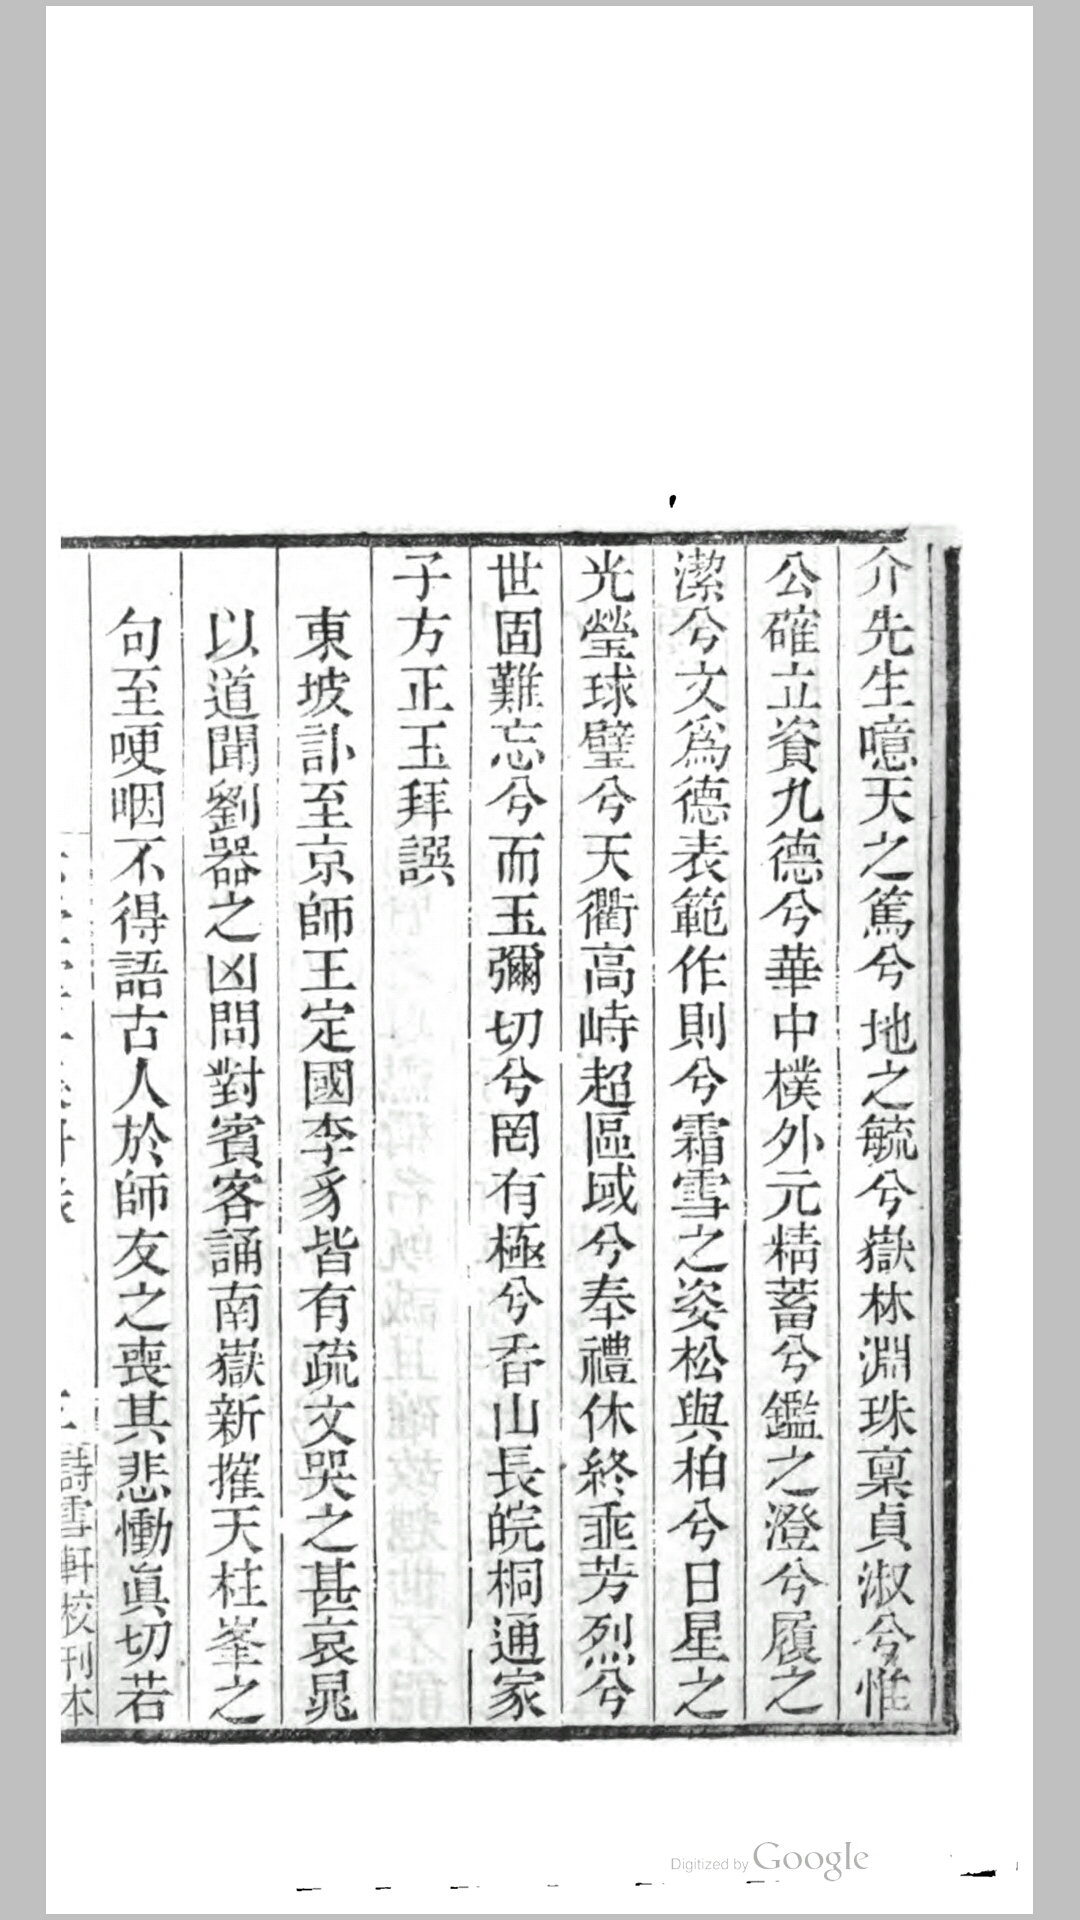 介先生噫天之篤兮地之毓兮嶽林淵珠稟貞淑兮惟
公確立資九德兮華中樸外元精蓄兮鑑之澄兮履之
潔兮文爲德表範作則兮霜雪之姿松與柏兮日星之
光瑩球璧兮天衢高峙超區域兮奉禮休終垂芳烈兮
世固難忘兮而玉彌切兮罔有極兮香山長皖桐通家
子方正玉拜譔
東坡訃至京師王定國李豸皆有疏文哭之甚哀晁
以道聞劉器之凶問對賓客誦南嶽新摧天柱峯之
句至哽咽不得語古人於師友之喪其悲慟眞切若
詩雪軒校刊本
Digitized by Google